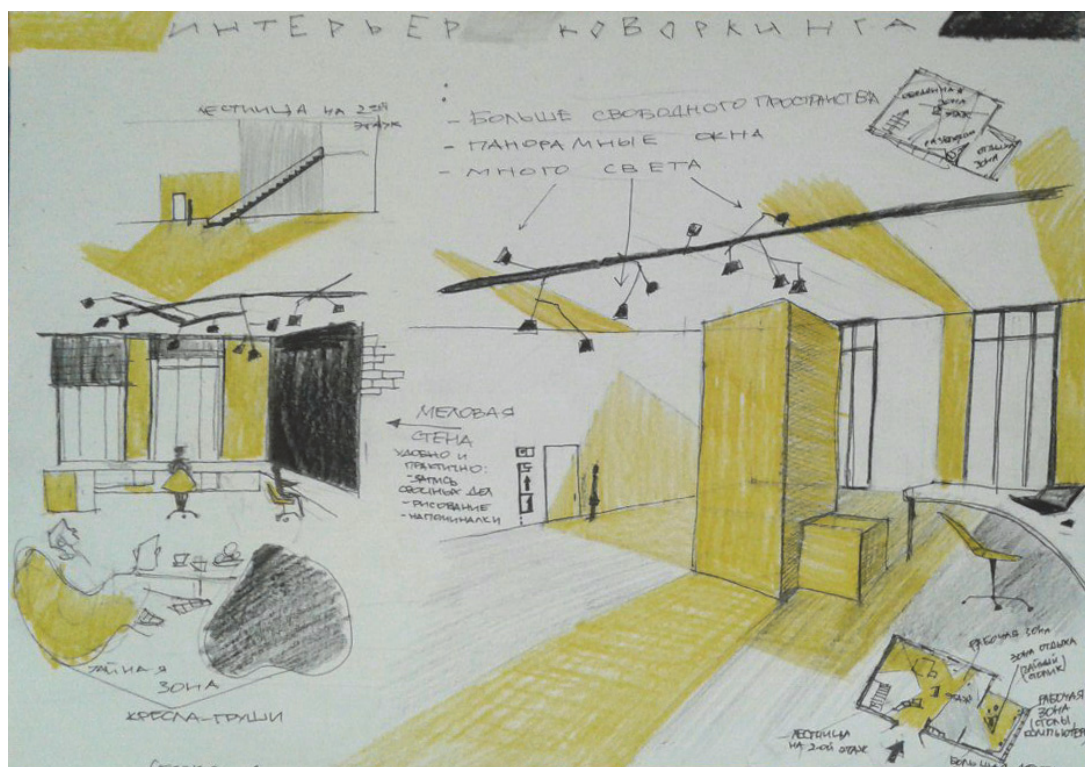 ИНТЕРЬЕР КОВОРКИНГА
ЛЕСТНИЦА НА 2ОЙ
ЭТАЖ
- БОЛЬШЕ СВОБОДНОГО ПРОСТРАНСТВА
- ПАНОРАМНЫЕ ОКНА
- МНОГО СВЕТА
ЗОНА
ЭТАЖ
ЗОНА
МЕЛОВАЯ
СТЕНА
УДОБНО И
ПРАКТИЧНО:
- ЗАПИСЬ
СРОЧНЫХ ДЕЛ
- РИСОВАНИЕ
- НАПОМИНАЛКИ
ЧАЙНАЯ
ЗОНА
КРЕСЛА-ГРУШИ
РАБОЧАЯ ЗОНА
ЗОНА ОТДЫХА
(ЧАЙНЫЙ
СТОЛИК)
1 ЭТАЖ
РАБОЧАЯ
ЗОНА
(СТОЛЫ
КОМПЬЮТЕР
ЛЕСТНИЦА
НА 2-ОЙ ЭТАЖ